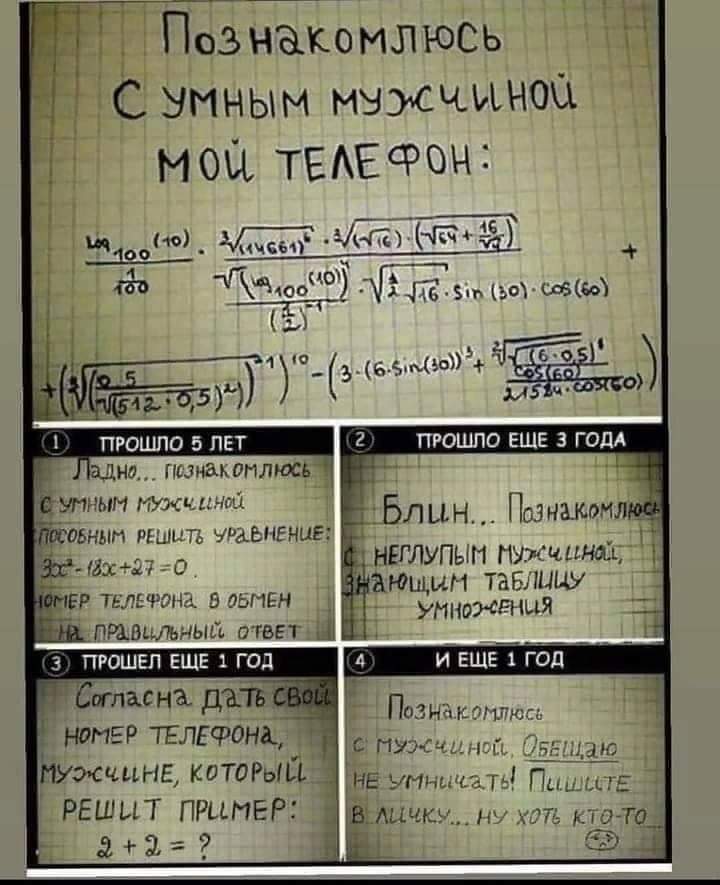 Познакомлюсь
с умным мужчиной
мой телефон:
log₁₀₀(10)
1/100
·
+
√((log₁₀₀(10))
·sin(30)·cos(60)
+
)¹⁰-(3·(6·sin(30))³+
① ПРОШЛО 5 ЛЕТ
Ладно... познакомлюсь
с умным мужчиной
способным решить уравнение:
3x²-18x+27=0.
номер телефона в обмен
на правильный ответ
② ПРОШЛО ЕЩЕ 3 ГОДА
Блин... Познакомлюсь
с неглупым мужчиной,
знающим таблицу
умножения
③ ПРОШЕЛ ЕЩЕ 1 ГОД
Согласна дать свой
номер телефона,
мужчине, который
решит пример:
2+2=?
④ И ЕЩЕ 1 ГОД
Познакомлюсь
с мужчиной. Обещаю
не умничать! Пишите
в личку... ну хоть кто-то